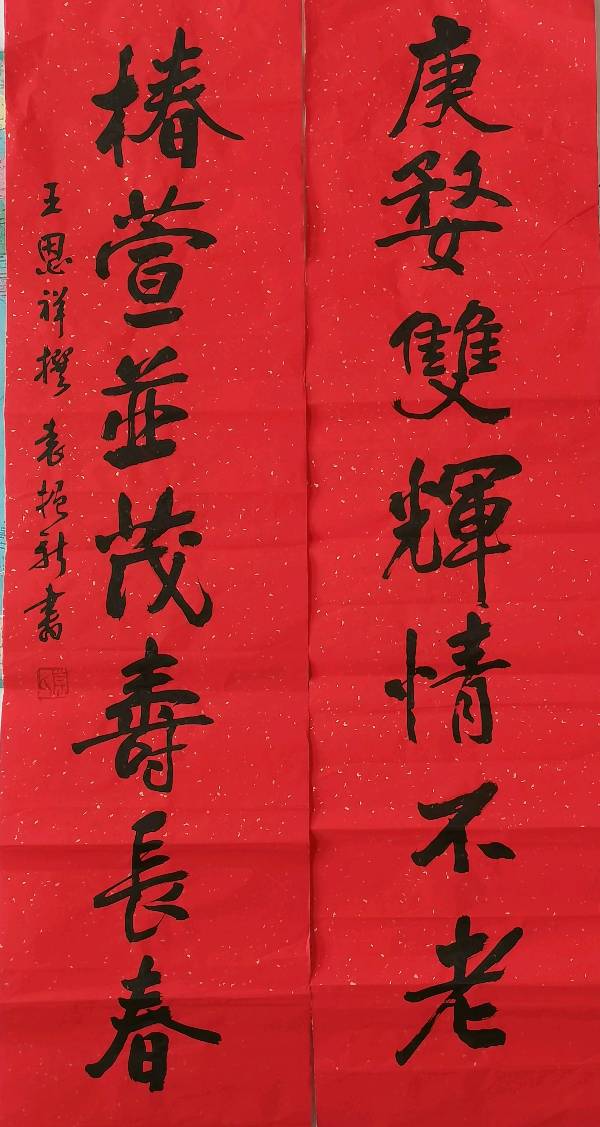 庚婺雙輝情不老
椿萱並茂壽長春
王恩祥撰 袁振新書